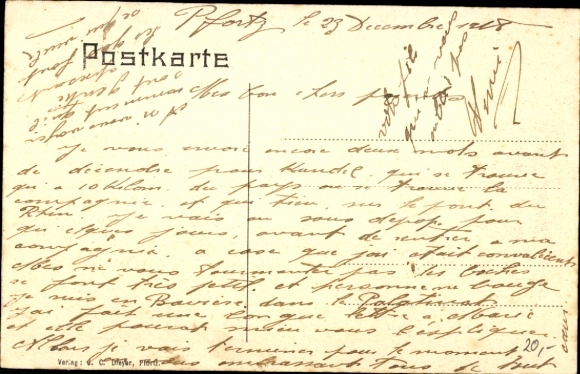 Pfortz le 23 Decembre 1918
Postkarte
Mes bon chers parents
Je vous envoie encore deux mots avant
de décendre pour Kandel, qui se trouve
qui a 10 Kilom. du pays ou se trouve la
compagnie, et qui tien, sur le pont du
Rhin. Je vais au sous depos pour
quelques jours, avant de rentrer a ma
compagnie, a case que jai était convalécent
Mes ne vous tourmenter pas les boches
se font très petit et personne ne bouge
je suis en Bavière dans le Palatinat
J'ai fait une longue lettre a Marie
et elle pourrat mieux vous l'éspliquer
Allons je vais terminer pour le moment
en vous embrassant tous de tout
cœur
votre fils
qui
Henri
20,-
Verlag: J. C. Dreyer, Pfortz.